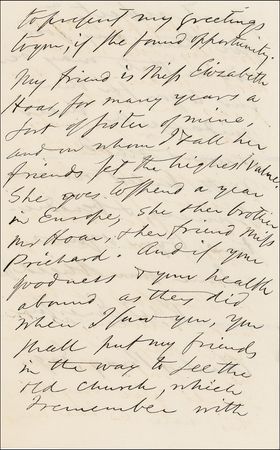 to present my greetings
to you, if she found opportunity.
My friend is Miss Elizabeth
Hoar, for many years a
sort of sister of mine,
and on whom I & all her
friends set the highest value.
She goes to spend a year
in Europe, she & her brother
Mr Hoar, & her friend Miss
Prichard. And if your
goodness & your health
abound as they did
when I saw you, you
shall put my friends
in the way to see the
old church, which
I remember with